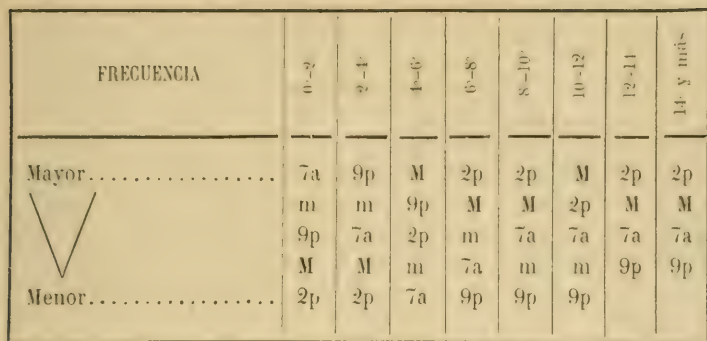 FRECUENCIA 0°-2° 2°-4° 4°-6° 6°-8° 8°-10° 10°-12 12°-14 14° y má-
Mayor................. 7a 9p M 2p 2p M 2p 2p
m m 9p M M 2p M M
9p 7a 2p m 7a 7a 7a 7a
M M m 7a m m 9p 9p
Menor................. 2p 2p 7a 9p 9p 9p